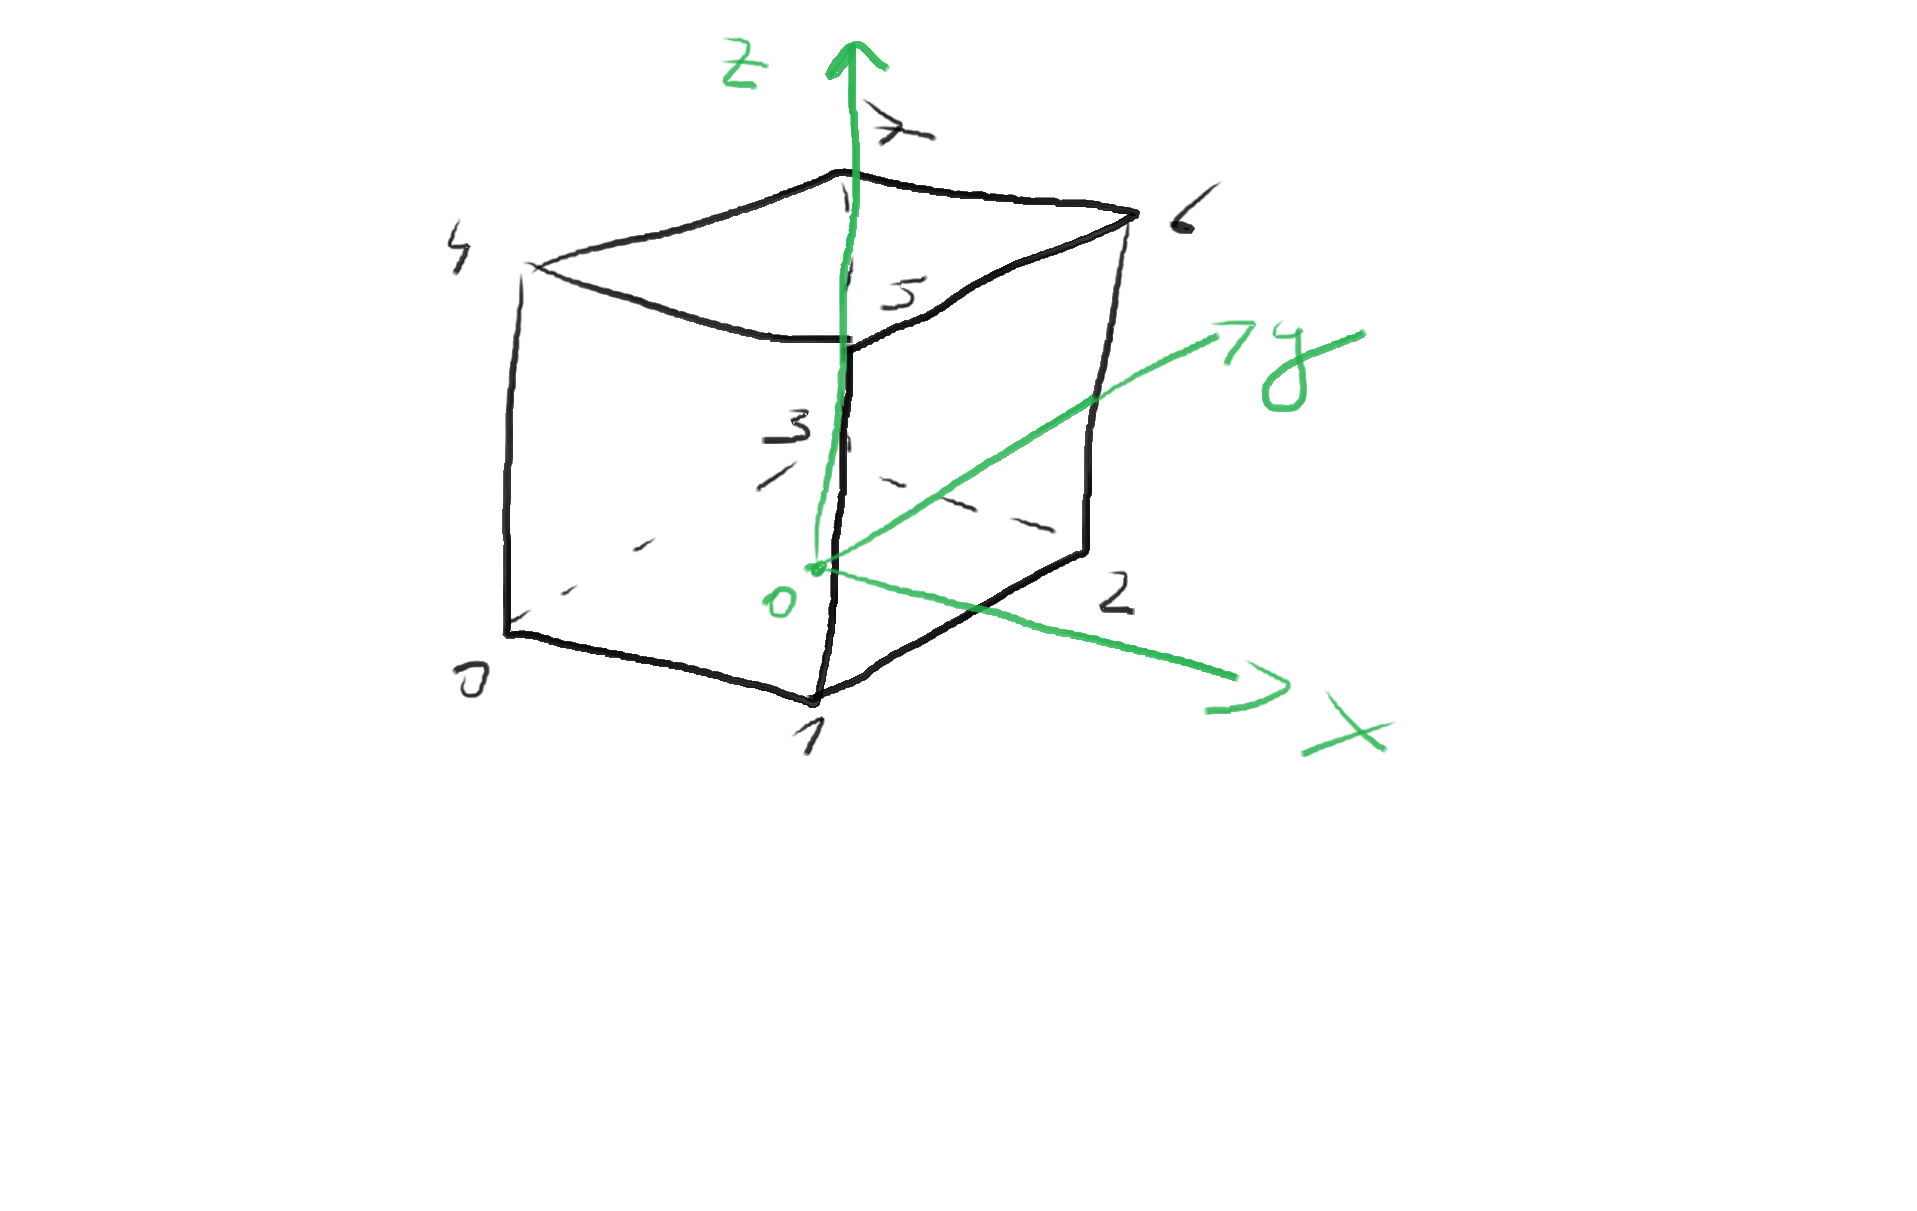 z
7
4
6
5
y
3
0
2
0
1
x